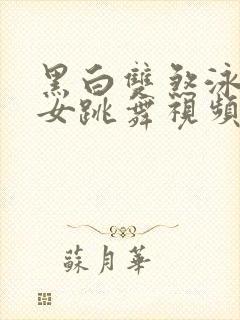 黑白雙煞泳
女跳舞視頻
蘇月華